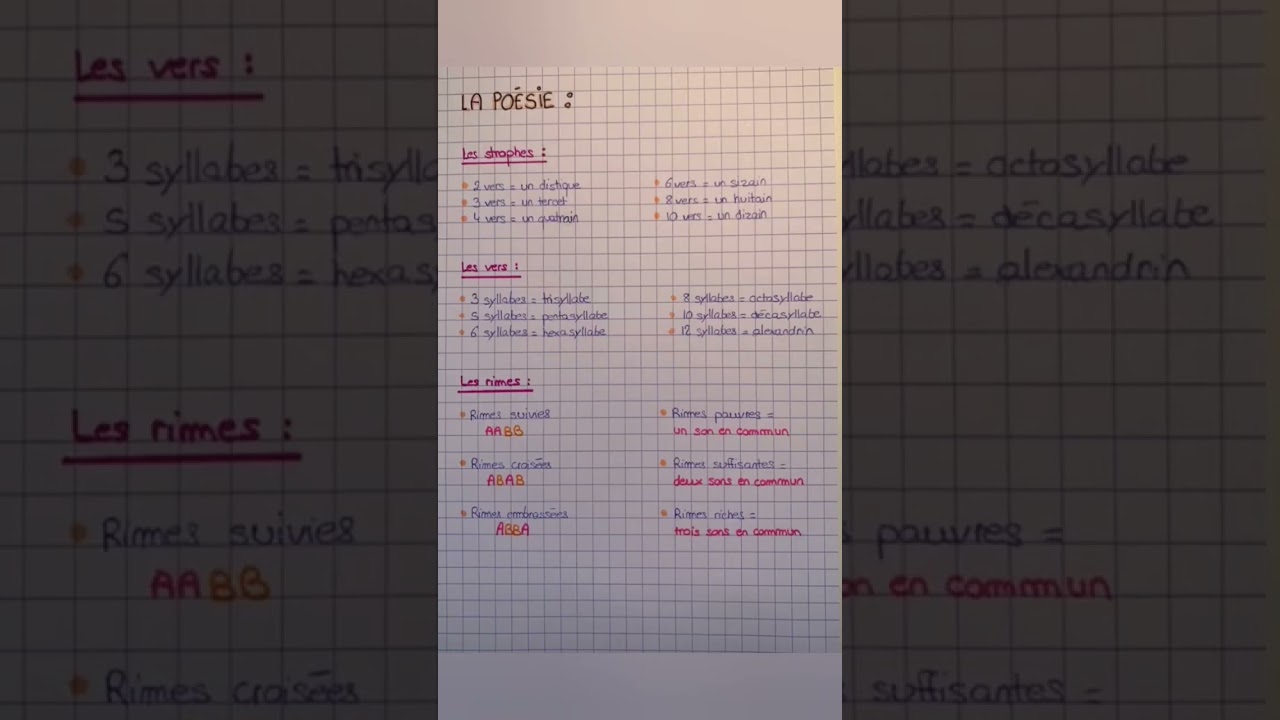 LA POÉSIE :
Les strophes :
2 vers = un distique
3 vers = un tercet
4 vers = un quatrain
6 vers = un sizain
8 vers = un huitain
10 vers = un dizain
Les vers :
3 syllabes = trisyllabe
5 syllabes = pentasyllabe
6 syllabes = hexasyllabe
8 syllabes = octosyllabe
10 syllabes = décasyllabe
12 syllabes = alexandrin
Les rimes :
Rimes suivies
AABB
Rimes croisées
ABAB
Rimes embrassées
ABBA
Rimes pauvres =
un son en commun
Rimes suffisantes =
deux sons en commun
Rimes riches =
trois sons en commun